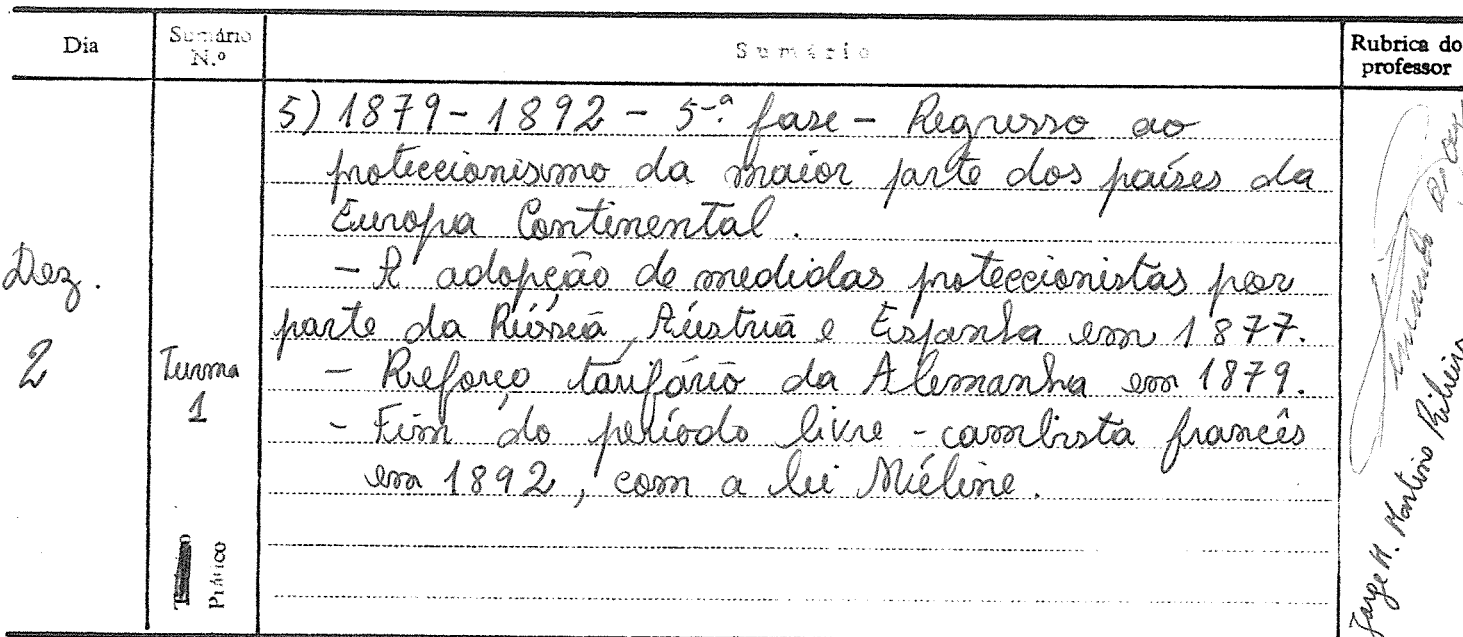 Dia
Sumário N.º
Sumário
Rubrica do professor
5) 1879-1892 - 5.ª fase - Regresso ao
proteccionismo da maior parte dos países da
Europa Continental.
- A adopção de medidas proteccionistas por
parte da Rússia, Áustria e Espanha em 1877.
- Reforço tarifário da Alemanha em 1879.
- Fim do período livre-cambista francês
em 1892, com a lei Méline.
Dez.
2
Turma
1
Prático
Jorge M. Martins Ribeiro